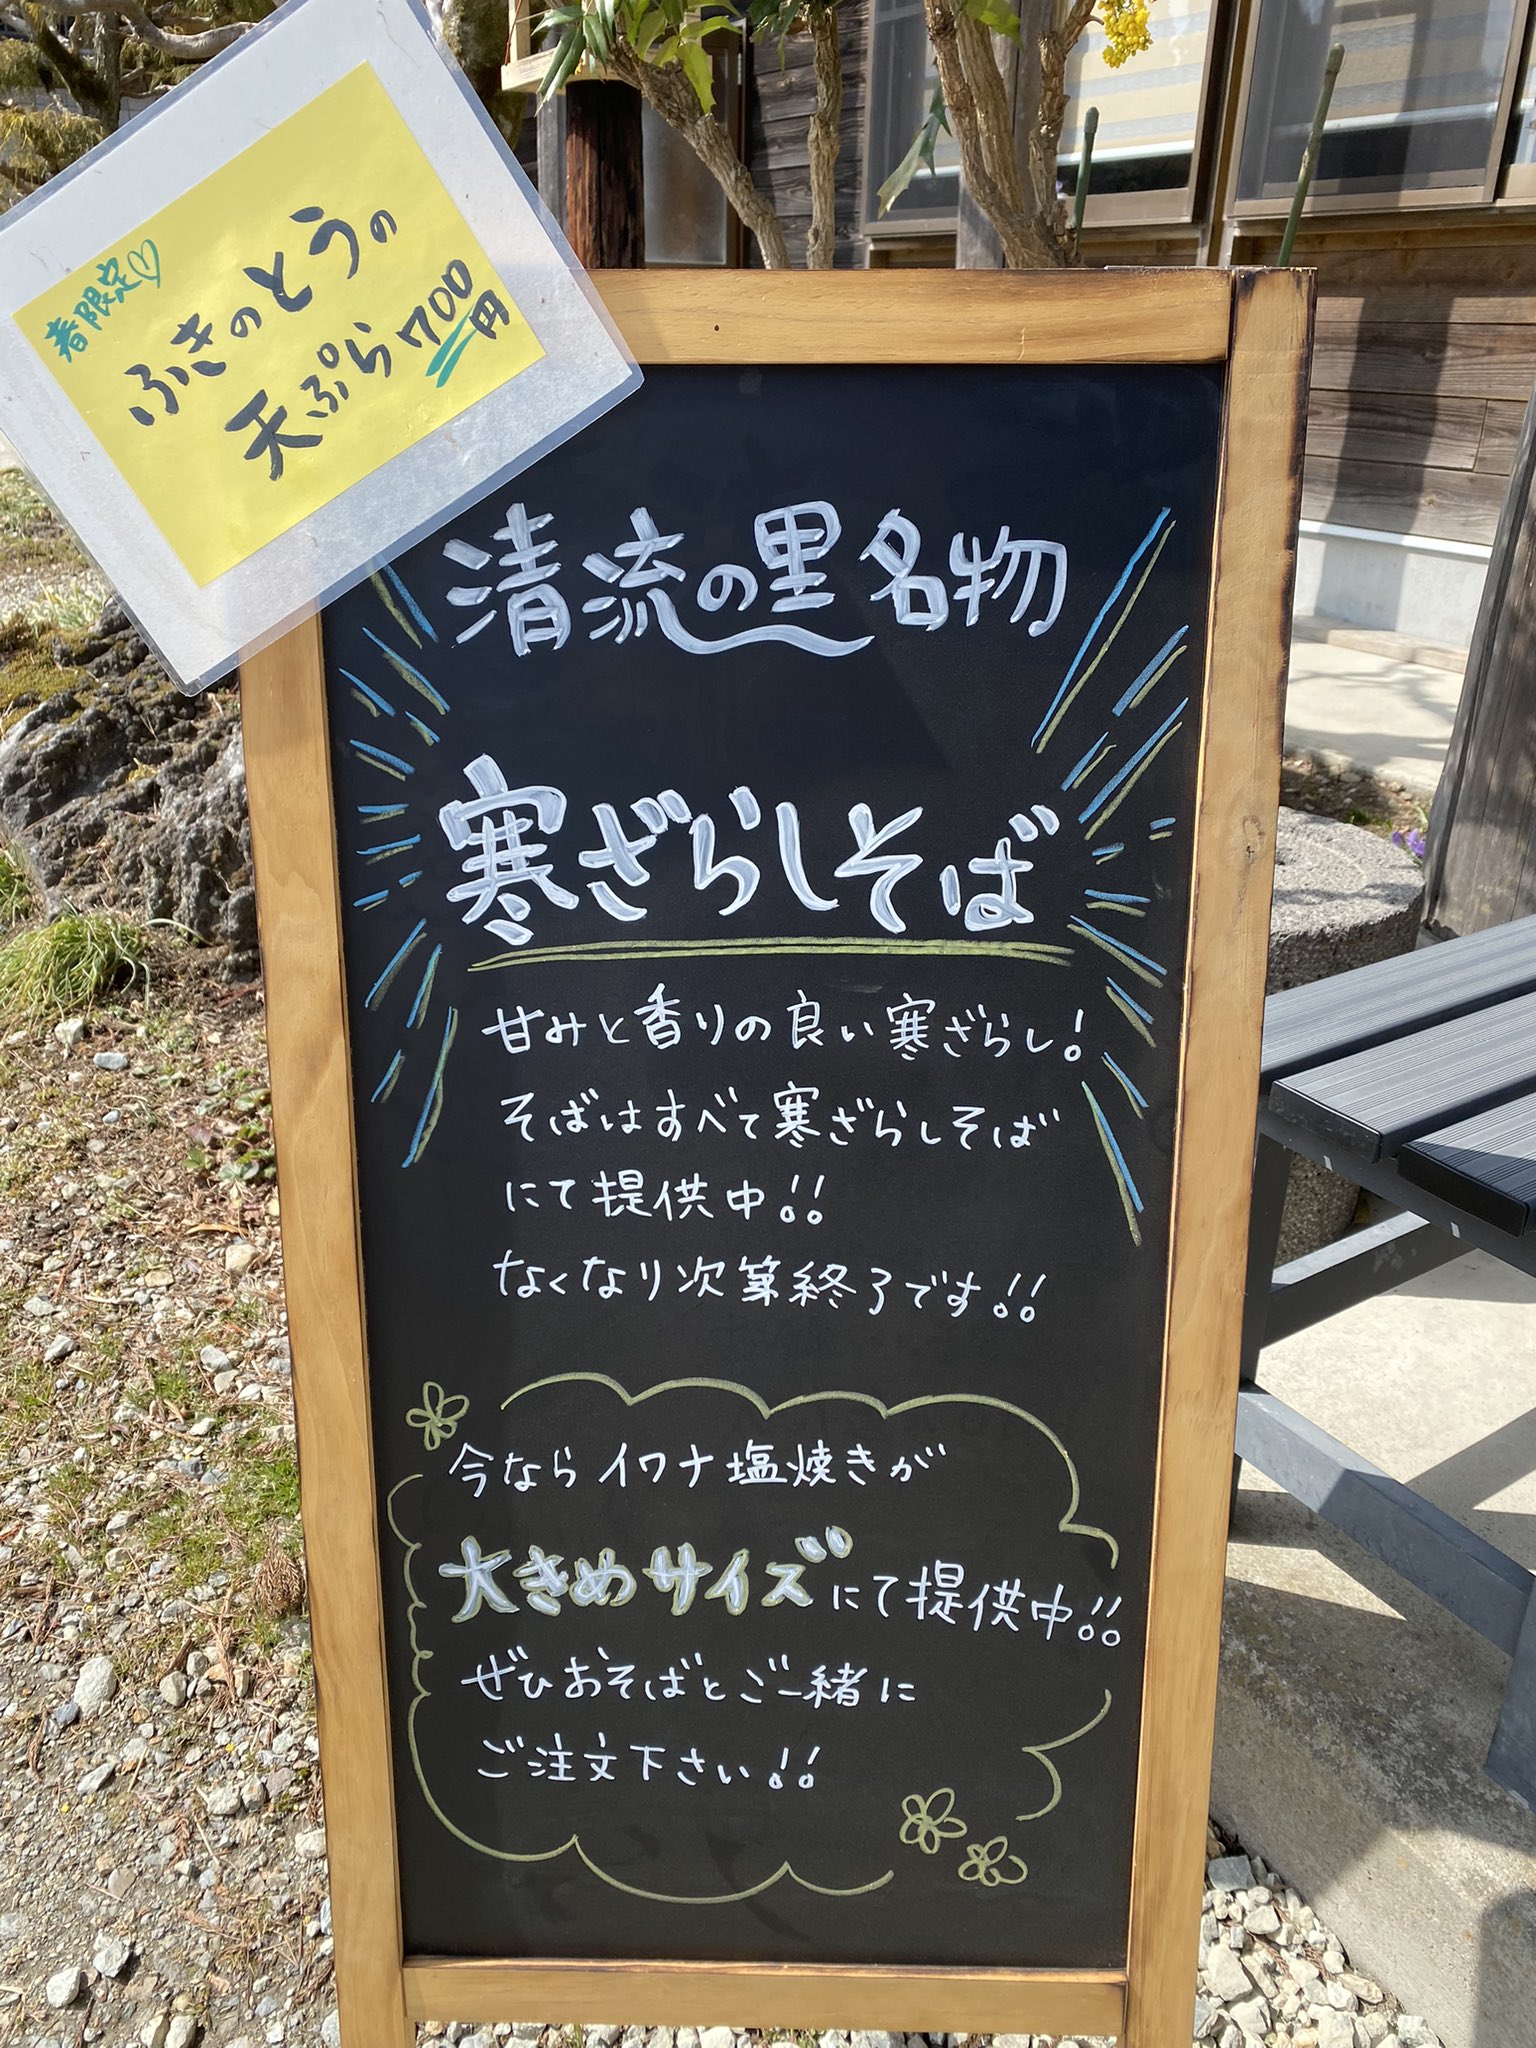 春限定♡
ふきのとうの
天ぷら700円
清流の里名物
寒ざらしそば
甘みと香りの良い寒ざらし!
そばはすべて寒ざらしそば
にて提供中!!
なくなり次第終了です!!
今ならイワナ塩焼きが
大きめサイズにて提供中!!
ぜひおそばとご一緒に
ご注文下さい!!